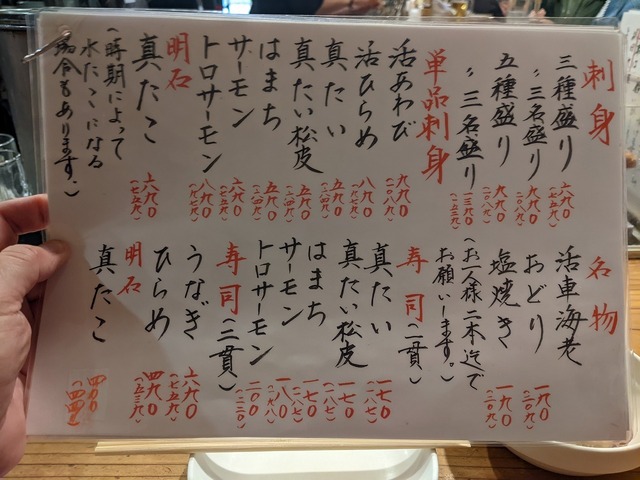 刺身
三種盛り 六九〇 (七五九)
〃三名盛り 九九〇 (一〇八九)
五種盛り 九九〇 (一〇八九)
〃三名盛り 一三九〇 (一五二九)
単品刺身
活あわび 九九〇 (一〇八九)
活ひらめ 八九〇 (九七九)
真たい 五九〇 (六四九)
真たい松皮 五九〇 (六四九)
はまち 五九〇 (六四九)
サーモン
トロサーモン 八九〇 (九七九)
明石
真たこ 六九〇 (七五九)
(時期によって
水たこになる
場合もあります。)
名物
活車海老
おどり 一九〇 (二〇九)
塩焼き 一九〇 (二〇九)
(お一人様二本迄で
お願いします。)
寿司(二貫)
真たい 一七〇 (一八七)
真たい松皮 一七〇 (一八七)
はまち 一七〇 (一八七)
サーモン 一八〇 (一九八)
トロサーモン 二〇〇 (二二〇)
寿司(三貫)
うなぎ 六九〇 (七五九)
ひらめ 四九〇 (五三九)
明石
真たこ 四〇〇